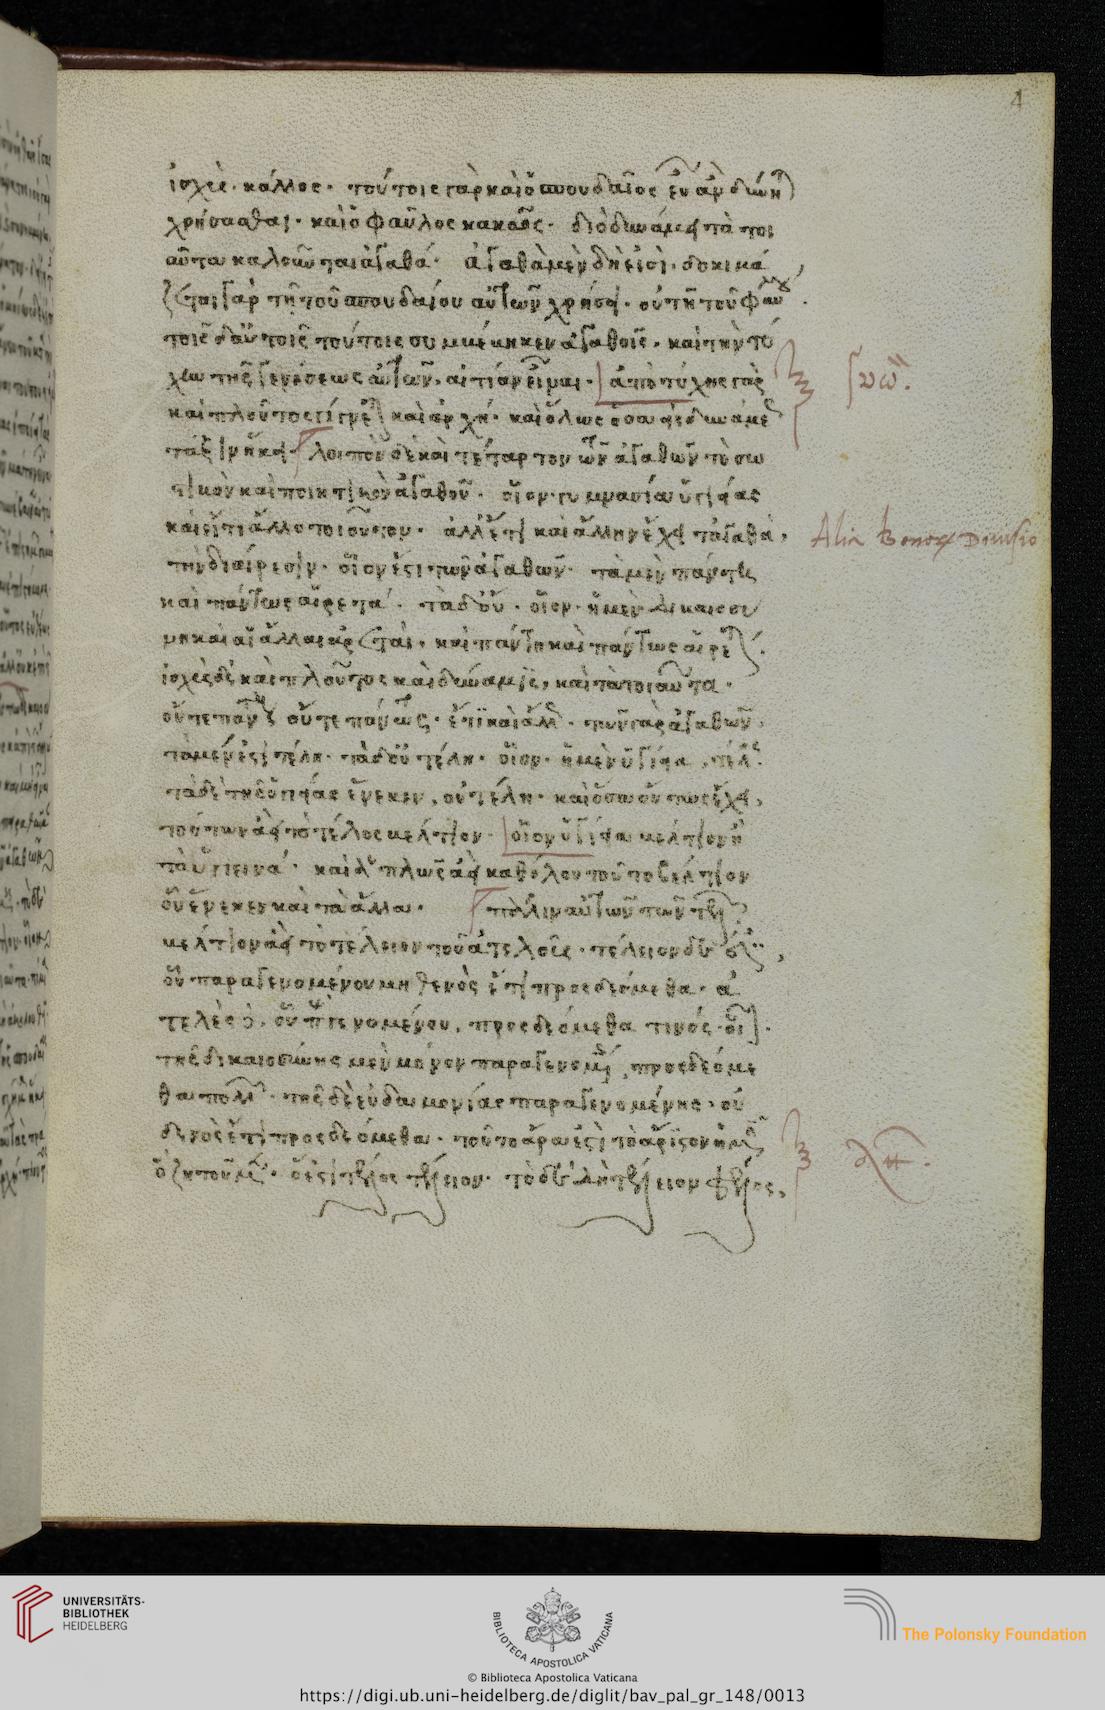 4
ἰσχὺς· κάλλος· τούτοις γὰρ καὶ ὁ σπουδαῖος εὖ ἂν δύνη
χρήσασθαι· καὶ ὁ φαῦλος κακῶς· διὸ δυνάμει τὰ τοι
αῦτα καλοῦνται ἀγαθά· ἀγαθὰ μὲν δή εἰσι· δοκιμά
ζεται γὰρ τῇ τοῦ σπουδαίου αὐτῶν χρήσει· οὐ τῇ τοῦ φαύλου·
τοῖς δ' αὐτοῖς τούτοις συμβέβηκεν ἀγαθοῖς· καὶ τὴν τύ
χην τῆς γενέσεως αὐτῶν· αἰτίαν εἶναι· ἀπὸ τύχης γὰρ
καὶ πλοῦτος γίνεται καὶ ἀρχή· καὶ ὅλως ὅσα εἰς δυνάμεως
τάξιν ἥκει· λοιπὸν δὲ καὶ τέταρτον τῶν ἀγαθῶν τὸ σω
στικὸν καὶ ποιητικὸν ἀγαθοῦ· οἷον γυμνασία ὑγιείας
καὶ εἴ τι ἄλλο τοιοῦτον· ἀλλ' ἔτι καὶ ἄλλην ἔχει τἀγαθὰ
τὴν διαίρεσιν· οἷόν ἐστι τῶν ἀγαθῶν· τὰ μὲν πάντῃ
καὶ πάντως αἱρετά· τὰ δ' οὔ· οἷον· ἡ μὲν δικαιοσύ
νη καὶ αἱ ἄλλαι ἀρεταὶ· καὶ πάντῃ καὶ πάντως αἱρεταί·
ἰσχὺς δὲ καὶ πλοῦτος καὶ δύναμις, καὶ τὰ τοιαῦτα·
οὔτε πάντῃ οὔτε πάντως· ἔτι καὶ ἄλλως· τῶν γὰρ ἀγαθῶν
τὰ μέν ἐστι τέλη· τὰ δ' οὐ τέλη· οἷον· ἡ μὲν ὑγίεια, τέλος·
τὰ δὲ τῆς ὑγιείας ἕνεκεν, οὐ τέλη· καὶ ὅσα οὕτως ἔχει,
τούτων ἀεὶ τὸ τέλος βέλτιον· οἷον ὑγίεια βέλτιον ἢ
τὰ ὑγιεινά· καὶ ἁπλῶς ἀεὶ καθόλου τοῦτο βέλτιον
οὗ ἕνεκεν καὶ τὰ ἄλλα· πάλιν αὐτῶν τῶν τελῶν
βέλτιον ἀεὶ τὸ τέλειον τοῦ ἀτελοῦς· τέλειον δέ ἐστιν,
οὗ παραγενομένου μηθενὸς ἔτι προσδεόμεθα· ἀ
τελὲς δὲ, οὗ παραγενομένου, προσδεόμεθά τινος· οἷον·
τῆς δικαιοσύνης μὲν μόνον παραγενομένης, προσδεόμε
θα πολλῶν· τῆς δὲ εὐδαιμονίας παραγενομένης· οὐ
δενὸς ἔτι προσδεόμεθα· τοῦτο ἄρα ἐστὶ τὸ ἄριστον ἡμῖν
ὃ ζητοῦμεν· ὅ ἐστι τέλος τέλειον· τὸ δὲ δὴ τέλειον τέλος,
Alia Bonorum Divisio
UNIVERSITÄTS-
BIBLIOTHEK
HEIDELBERG
BIBLIOTECA APOSTOLICA VATICANA
The Polonsky Foundation
© Biblioteca Apostolica Vaticana
https://digi.ub.uni-heidelberg.de/diglit/bav_pal_gr_148/0013